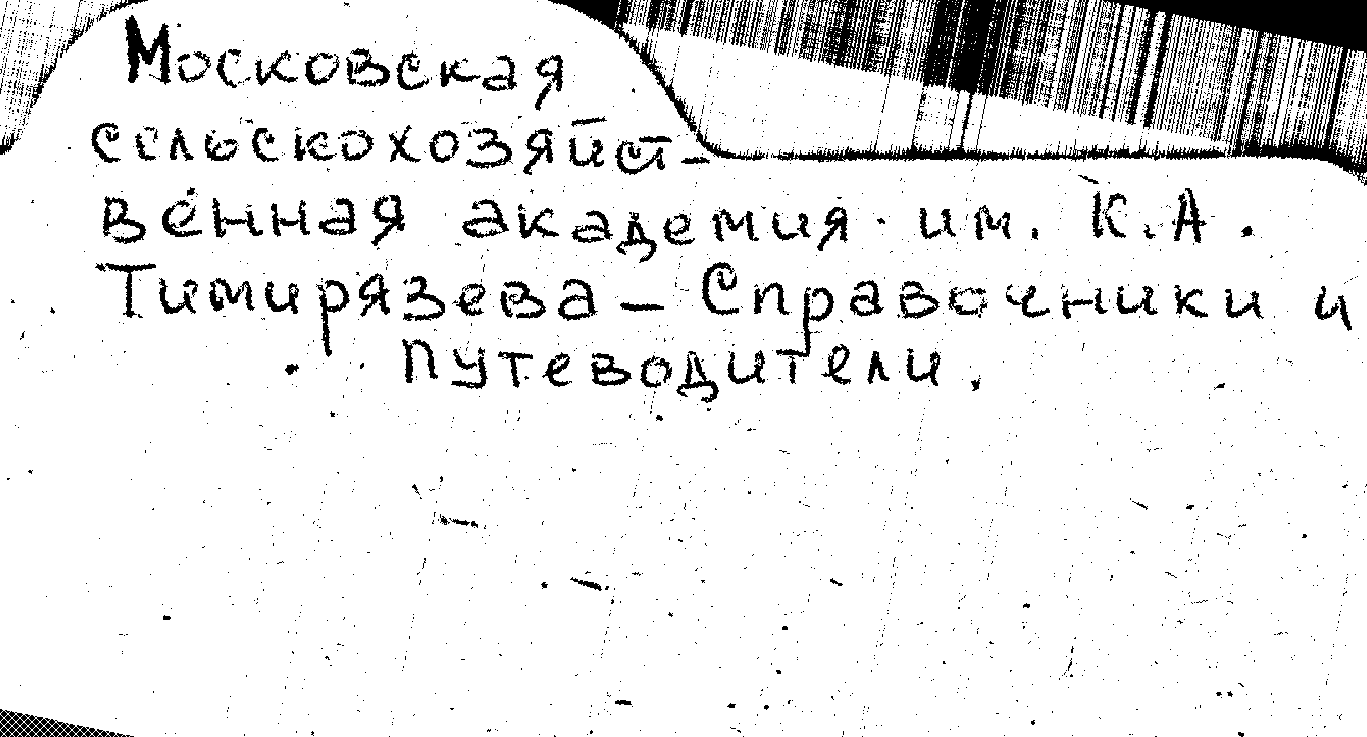 Московская
сельскохозяйст-
венная академия им. К.А.
Тимирязева — Справочники и
путеводители.